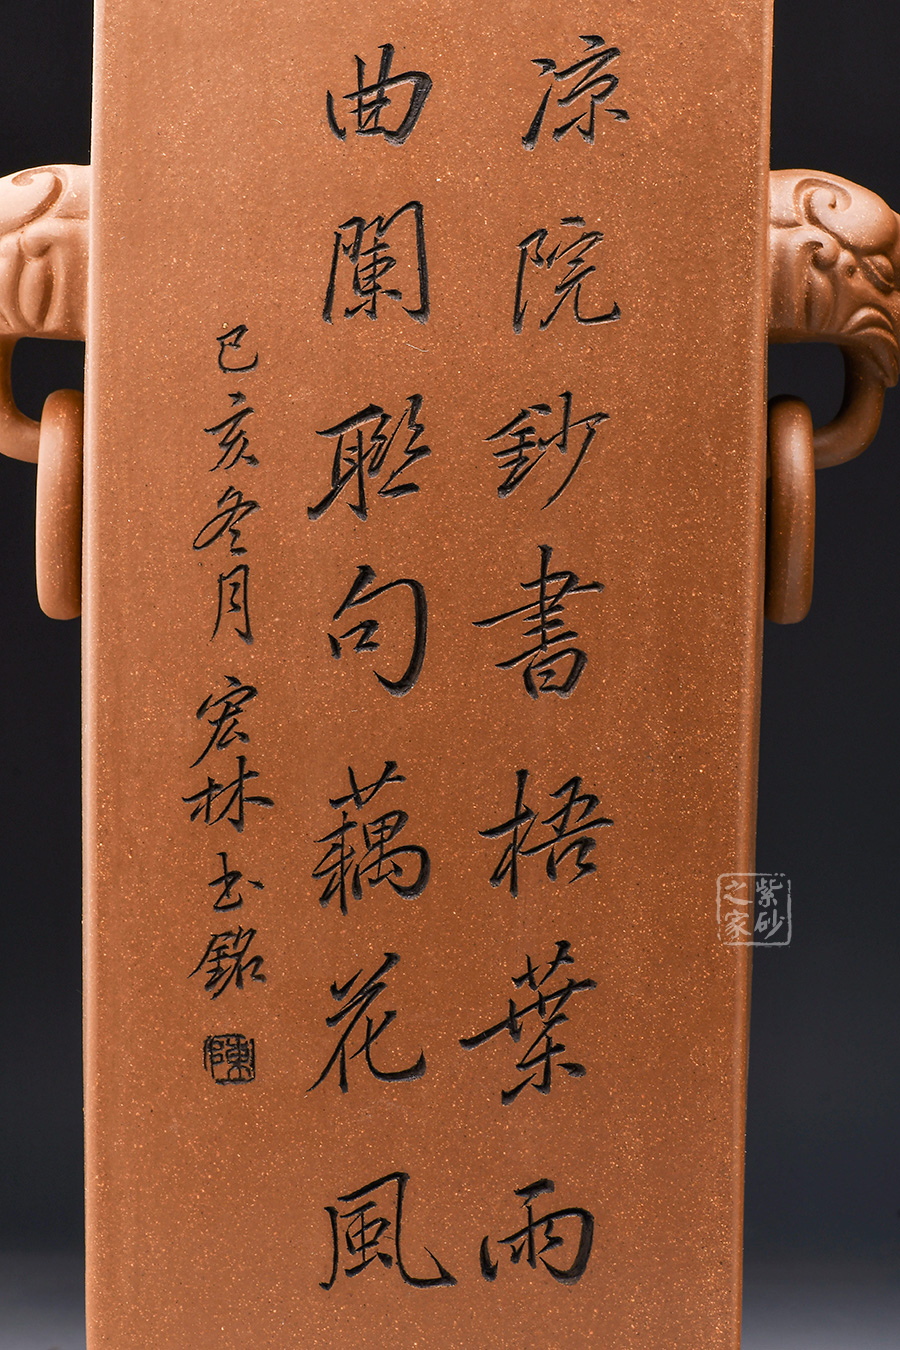 凉院鈔書梧葉雨
曲闌聯句藕花風
己亥冬月宏林玉銘
陳
紫砂之家